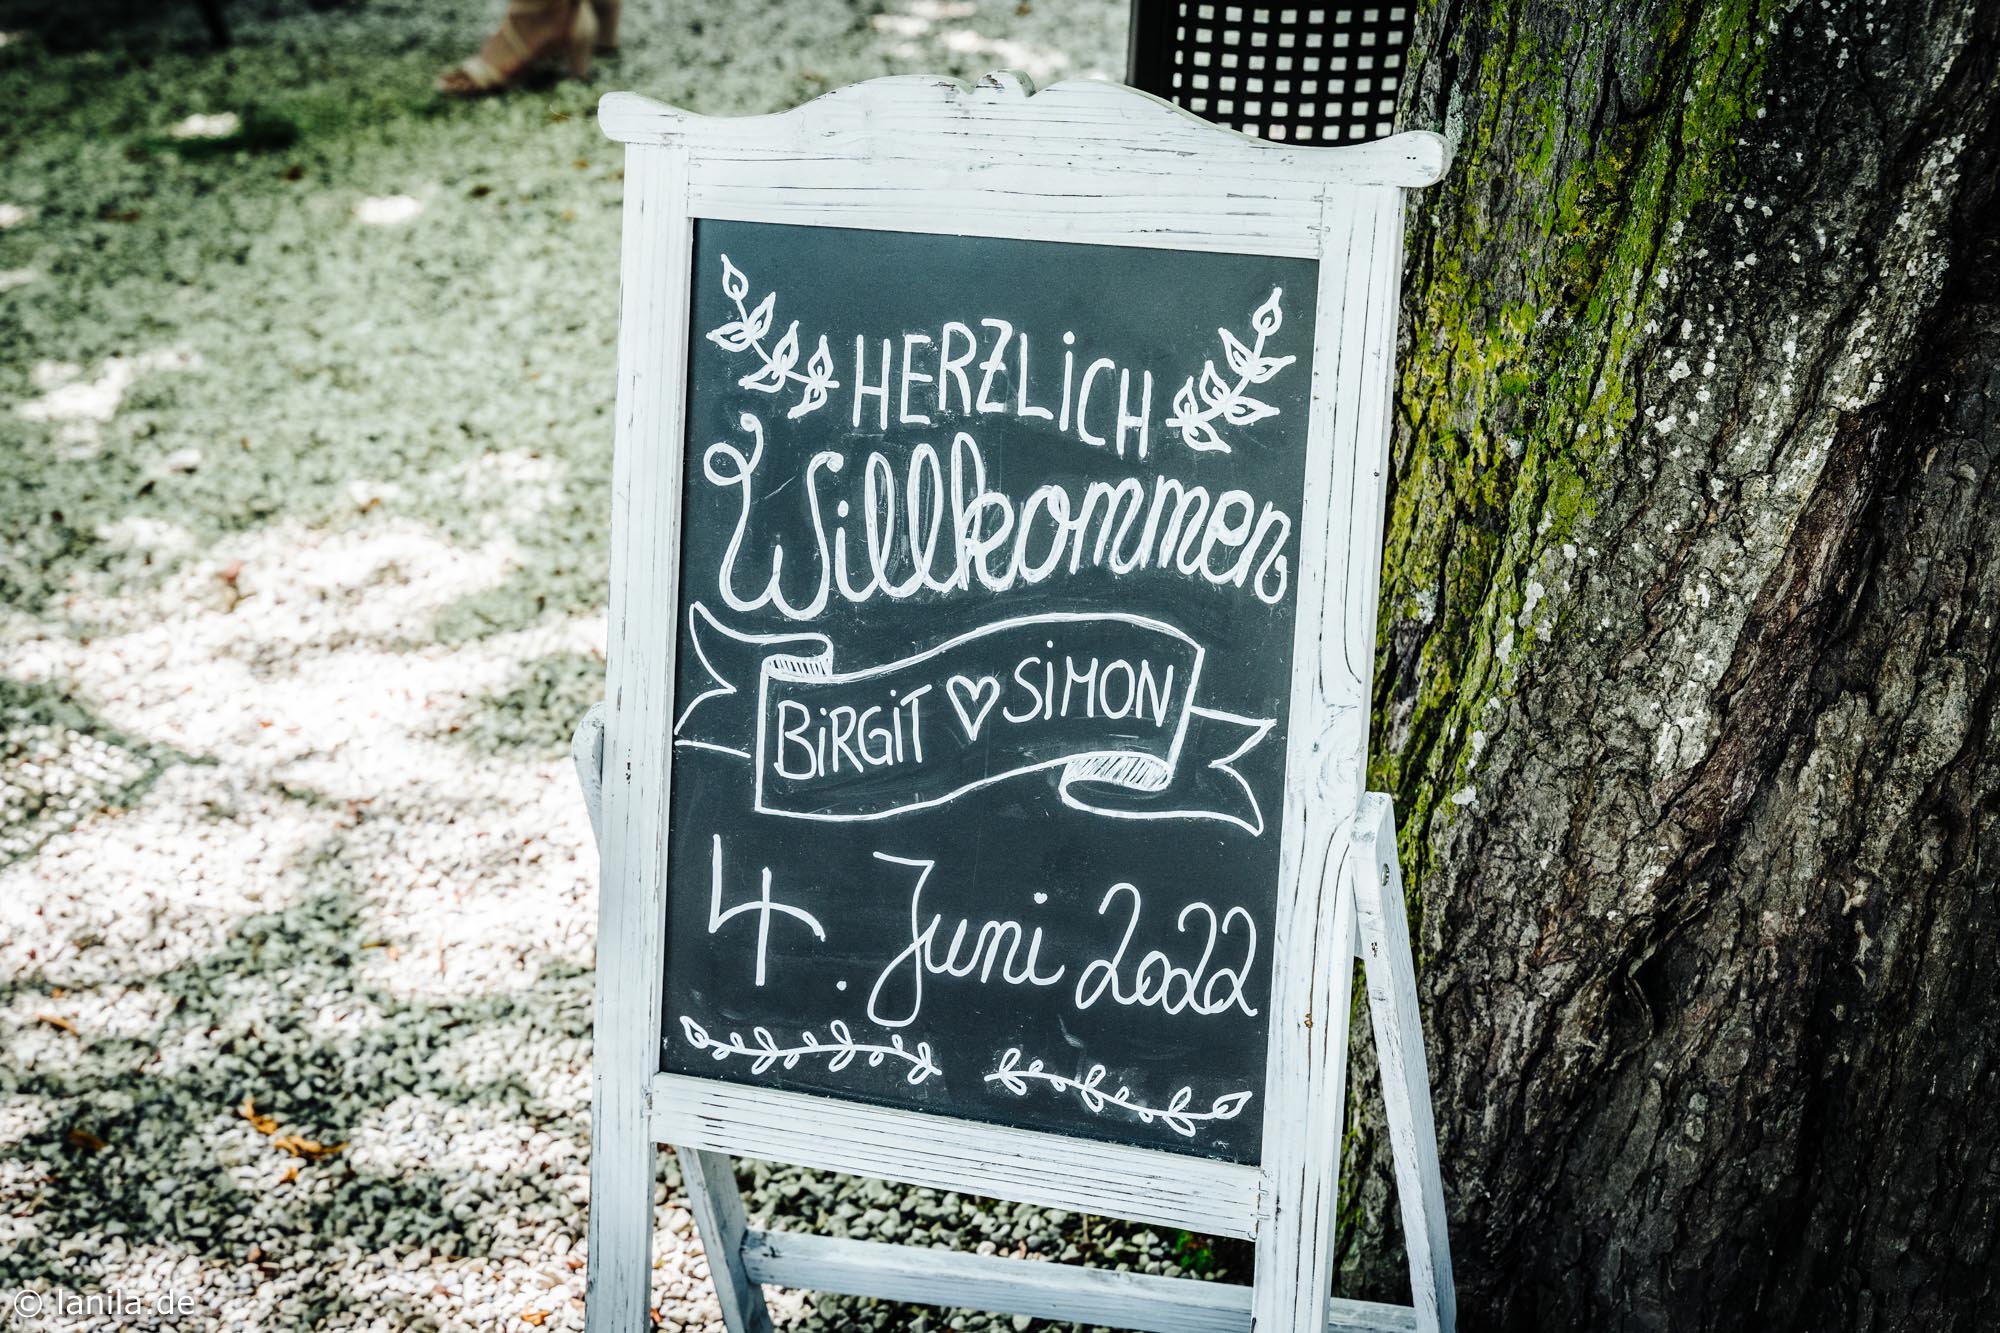 HERZLiCH
Willkommen
BiRGiT ♡ SiMON
4. Juni 2022
© lanila.de